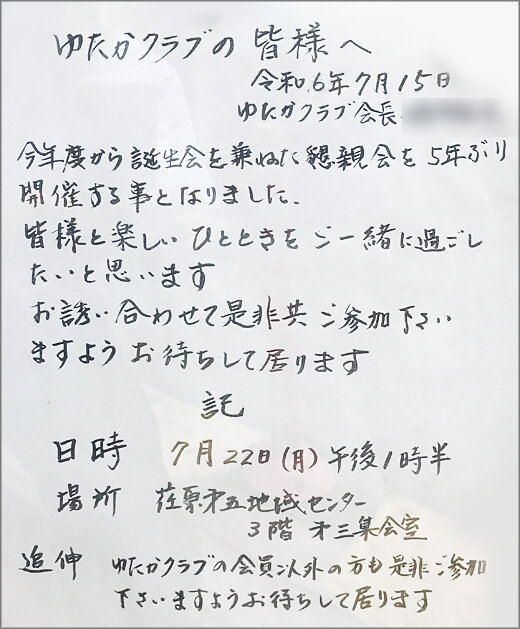 ゆたかクラブの 皆様へ
令和6年7月15日
ゆたかクラブ会長
今年度から誕生会を兼ねた懇親会を5年ぶり
開催する事となりました、
皆様と楽しいひとときをご一緒に過ごし
たいと思います
お誘い合わせて是非共ご参加下さい
ますようお待ちして居ります
記
日時 7月22日(月)午後1時半
場所 荏原才五地域センター
3階 才三集会室
追伸 ゆたかクラブの会員以外の方も是非ご参加
下さいますようお待ちして居ります